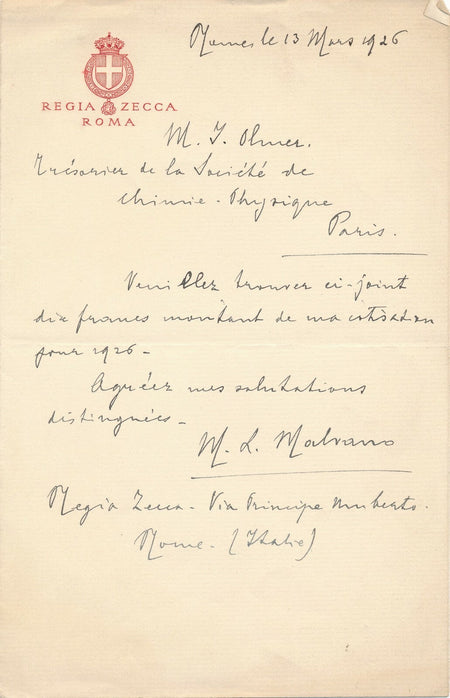 Rome, le 13 Mars 1926
REGIA ZECCA
ROMA
M. J. Olmer.
Trésorier de la Société de
Chimie-Physique
Paris.
Veuillez trouver ci-joint
dix francs montant de ma cotisation
pour 1926-
Agréez mes salutations
distinguées-
M. L. Malvano
Regia Zecca - Via Principe Umberto.
Rome. (Italie)